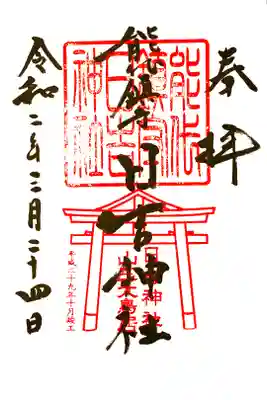 奉拝
能代鎮守日吉神社
令和二年三月二十四日
日吉神社
山王大鳥居
平成二十九年十月竣工